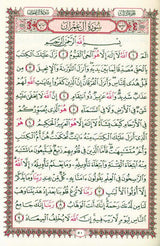 سورة آل عمران
بسم الله الرحمن الرحيم
الم ١ الله لا إله إلا هو الحي القيوم ٢ نزل عليك الكتاب
بالحق مصدقا لما بين يديه وأنزل التوراة والإنجيل ٣
من قبل هدى للناس وأنزل الفرقان إن الذين كفروا بآيات الله لهم
عذاب شديد والله عزيز ذو انتقام ٤ إن الله لا يخفى عليه شيء
في الأرض ولا في السماء ٥ هو الذي يصوركم في الأرحام
كيف يشاء لا إله إلا هو العزيز الحكيم ٦ هو الذي أنزل
عليك الكتاب منه آيات محكمات هن أم الكتاب وأخر
متشابهات فأما الذين في قلوبهم زيغ فيتبعون ما تشابه منه
ابتغاء الفتنة وابتغاء تأويله وما يعلم تأويله إلا الله والراسخون
في العلم يقولون آمنا به كل من عند ربنا وما يذكر إلا أولو
الألباب ٧ ربنا لا تزغ قلوبنا بعد إذ هديتنا وهب لنا من
لدنك رحمة إنك أنت الوهاب ٨ ربنا إنك جامع
الناس ليوم لا ريب فيه إن الله لا يخلف الميعاد ٩
٥٠